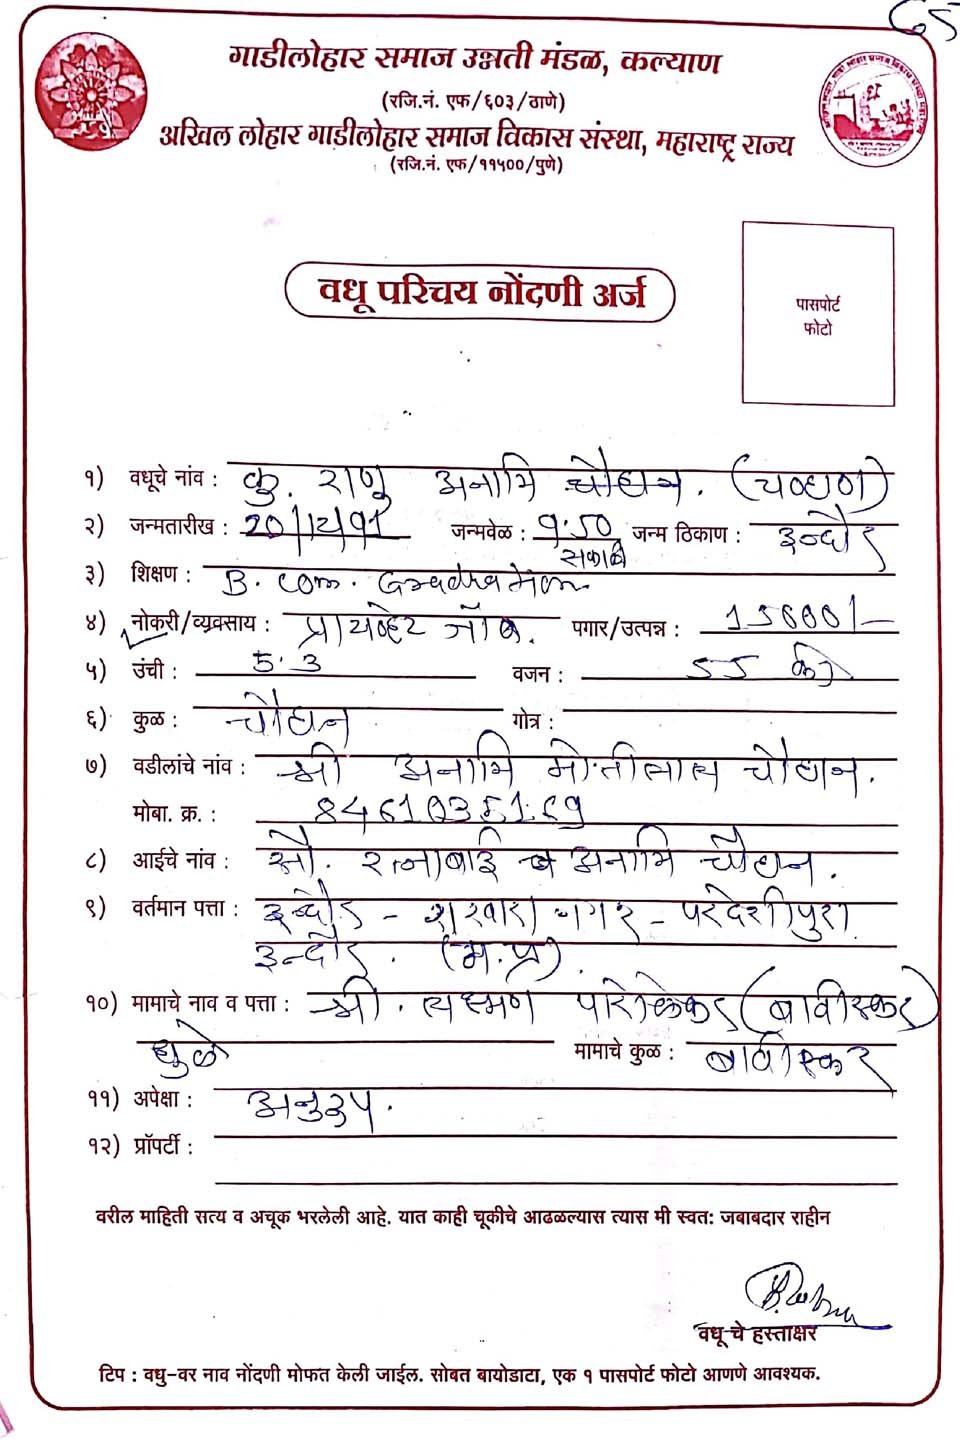 65
गाडीलोहार समाज उन्नती मंडळ, कल्याण
(रजि.नं. एफ/६०३/ठाणे)
अखिल लोहार गाडीलोहार समाज विकास संस्था, महाराष्ट्र राज्य
(रजि.नं. एफ/११५००/पुणे)
वधू परिचय नोंदणी अर्ज
पासपोर्ट
फोटो
१) वधूचे नांव : कु. राणु अनाभि चौधन. (चव्हाण)
२) जन्मतारीख : 20/12/91 जन्मवेळ : 9:50 सकाळी जन्म ठिकाण : इन्दौर
३) शिक्षण : B. com. Graduation
४) नोकरी/व्यवसाय : प्रायव्हेट जॉब. पगार/उत्पन्न : 15000/-
५) उंची : 5.3 वजन : 55 की
६) कुळ : चौधन गोत्र :
७) वडीलांचे नांव : श्री अनाभि मोतीलाल चौधन.
मोबा. क्र. : 8461035169
८) आईचे नांव : सौ. रत्नाबाई अनाभि चौधन.
९) वर्तमान पत्ता : इन्दौर - नगर - परदेशीपुरा
इन्दौर. (म.प्र).
१०) मामाचे नाव व पत्ता : श्री. लक्ष्मण (बावीस्कर)
धुळे मामाचे कुळ : बावीस्कर
११) अपेक्षा : अनुरुप.
१२) प्रॉपर्टी :
वरील माहिती सत्य व अचूक भरलेली आहे. यात काही चूकीचे आढळल्यास त्यास मी स्वत: जबाबदार राहीन
वधू चे हस्ताक्षर
टिप : वधु-वर नाव नोंदणी मोफत केली जाईल. सोबत बायोडाटा, एक १ पासपोर्ट फोटो आणणे आवश्यक.